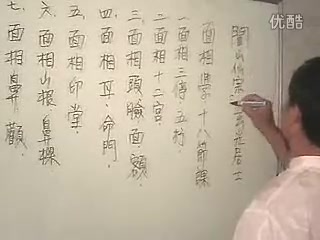 閭山仙宗玄光居士
面相學十八節課
一面相三停.五行.
二面相十二宮.
三.面相頭臉面額.
四.面相耳.命門.
五.面相印堂.
六.面相山根鼻樑
七.面相鼻顴.
优酷